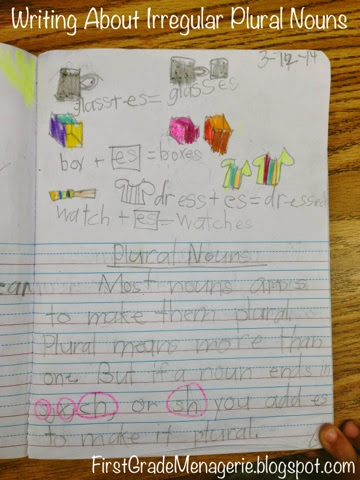 Writing About Irregular Plural Nouns
3-12-14
glass+es= glasses
box + es = boxes
dress + es = dresses
watch + es = watches
Plural Nouns
Most nouns
to make them plural.
Plural means more than
one. But if a noun ends in
ch, or sh, you add es
to make it plural.
FirstGradeMenagerie.blogspot.com